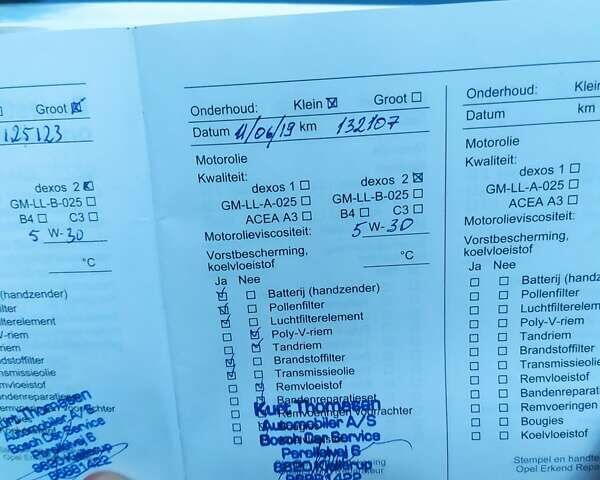 Groot ☒
125123
dexos 2 ☒
GM-LL-B-025 ☐
B4 ☐ C3 ☐
5 W-30
°C
(handzender)
lter
lterelement
iem
m
dstoffilter
nsmissieolie
mvloeistof
ndenreparatieset
Kurt Thomesen
Automobiler A/S
Bosch Car Service
Parallelvej 6
8620 Kjellerup
86881422
Onderhoud: Klein ☒ Groot ☐
Datum 11/06/19 km 132107
Motorolie
Kwaliteit:
dexos 1 ☐ dexos 2 ☒
GM-LL-A-025 ☐ GM-LL-B-025 ☐
ACEA A3 ☐ B4 ☐ C3 ☐
Motorolieviscositeit: 5 W-30
Vorstbescherming,
koelvloeistof °C
Ja Nee
Batterij (handzender)
Pollenfilter
Luchtfilterelement
Poly-V-riem
Tandriem
Brandstoffilter
Transmissieolie
Remvloeistof
Bandenreparatieset
Remvoeringen voor/achter
Bougies
Kurt Thomesen
Automobiler A/S
Bosch Car Service
Parallelvej 6
8620 Kjellerup
86881422
Onderhoud: Klein
Datum km
Motorolie
Kwaliteit:
dexos 1 ☐
GM-LL-A-025 ☐
ACEA A3 ☐
Motorolieviscositeit:
Vorstbescherming,
koelvloeistof
Ja Nee
Batterij (handzende
Pollenfilter
Luchtfilterelemen
Poly-V-riem
Tandriem
Brandstoffilter
Transmissieolie
Remvloeistof
Bandenreparatie
Remvoeringen
Bougies
Koelvloeistof
Stempel en handte
Opel Erkend Repa